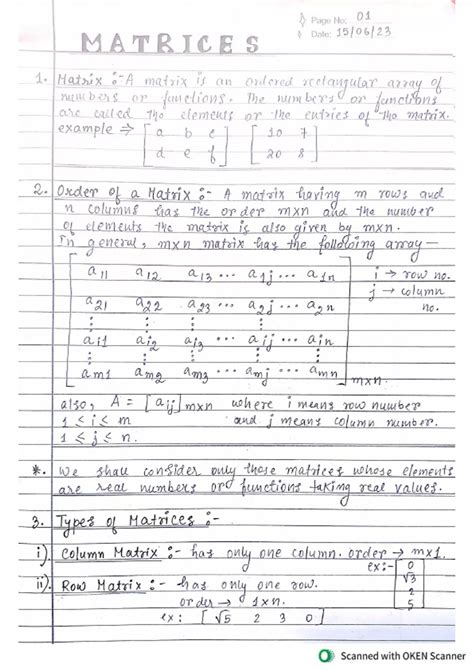 Page No: 01
Date: 15/06/23
MATRICES
1. Matrix :- A matrix is an ordered rectangular array of
numbers or functions. The numbers or functions
are called the elements or the entries of the matrix.
example ⇒ [ a b c [ 10 7
d e f ] 20 8 ]
2. Order of a Matrix :- A matrix having m rows and
n columns has the order m×n and the number
of elements the matrix is also given by m×n.
In general, m×n matrix has the following array—
a11 a12 a13 ... a1j ... a1n i → row no.
j → column
a21 a22 a23 ... a2j ... a2n no.
⋮ ⋮ ⋮ ⋮ ⋮
ai1 ai2 ai3 ... aij ... ain
⋮ ⋮ ⋮ ⋮ ⋮
am1 am2 am3 ... amj ... amn m×n.
also, A = [aij] m×n where i means row number
1 ≤ i ≤ m and j means column number.
1 ≤ j ≤ n.
*. We shall consider only those matrices whose elements
are real numbers or functions taking real values.
3. Types of Matrices :-
i) Column Matrix :- has only one column. order → m×1.
ex:- [ 0
√3
2
5 ]
ii) Row Matrix :- has only one row.
order → 1×n.
ex: [ √5 2 3 0 ]
Scanned with OKEN Scanner